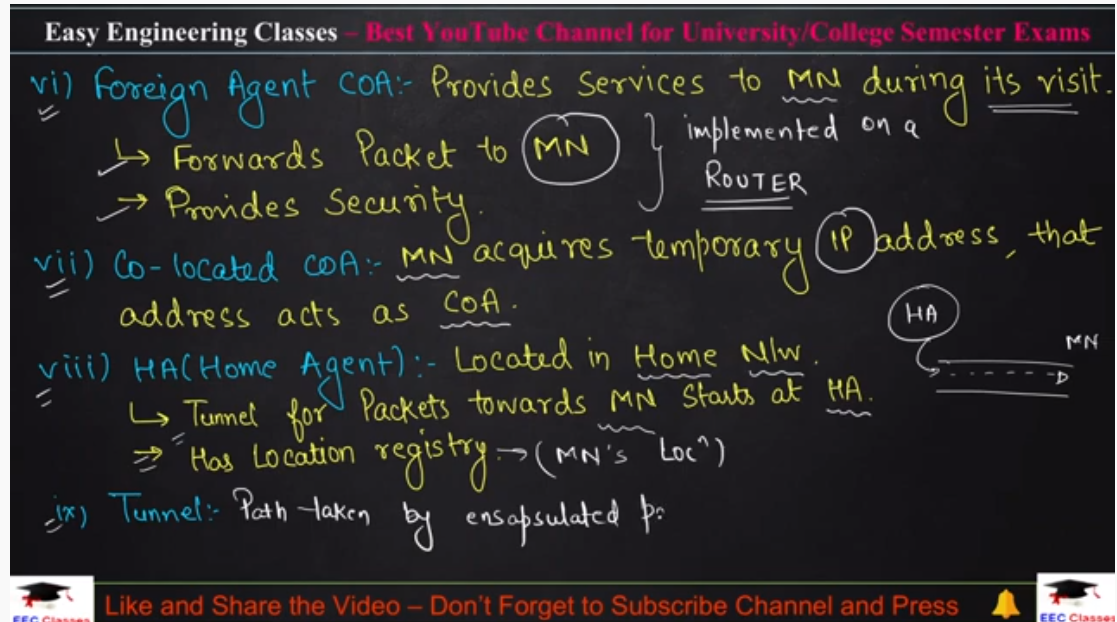 Easy Engineering Classes – Best YouTube Channel for University/College Semester Exams
vi) Foreign Agent COA:- Provides Services to MN during its visit.
↳ Forwards Packet to MN
→ Provides Security.
implemented on a
ROUTER
vii) Co-located COA:- MN acquires temporary IP address, that
address acts as COA.
HA
MN
viii) HA(Home Agent):- Located in Home N/w.
↳ Tunnel for Packets towards MN Starts at HA.
⇒ Has Location registry. → (MN's Locⁿ)
ix) Tunnel:- Path taken by ensapsulated
Like and Share the Video – Don't Forget to Subscribe Channel and Press
EEC Classes
EEC Classes